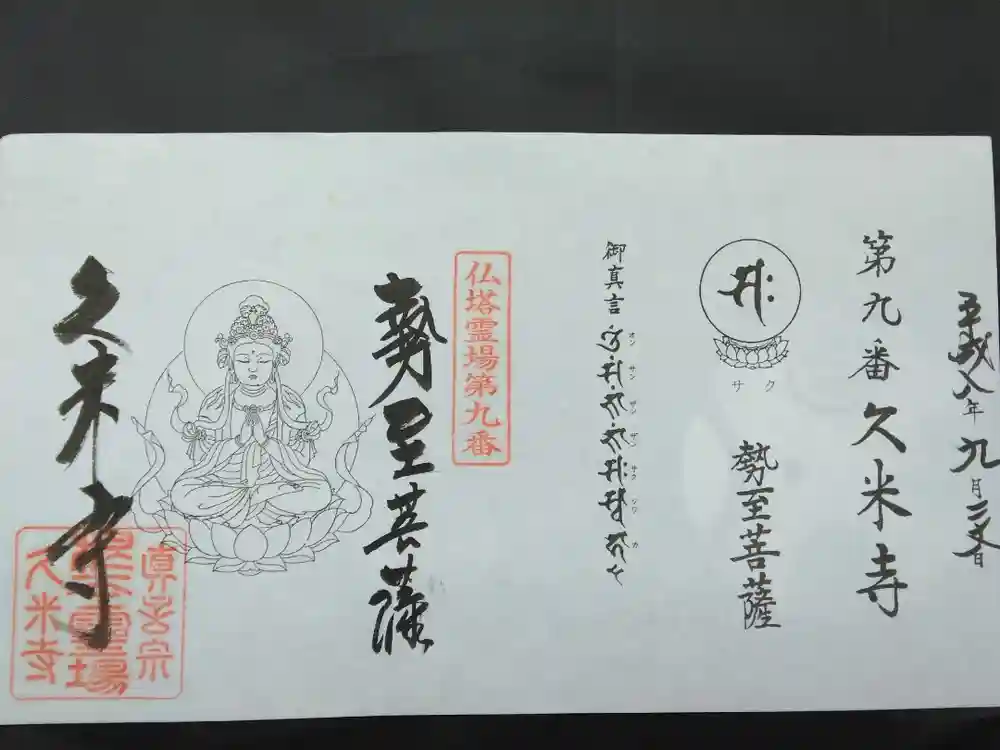 平成八年九月二十八日
第九番久米寺
サク
勢至菩薩
御真言
オン サン ザン ザン サク ソワ カ
仏塔霊場第九番
勢至菩薩
久米寺
真言宗
霊場
久米寺